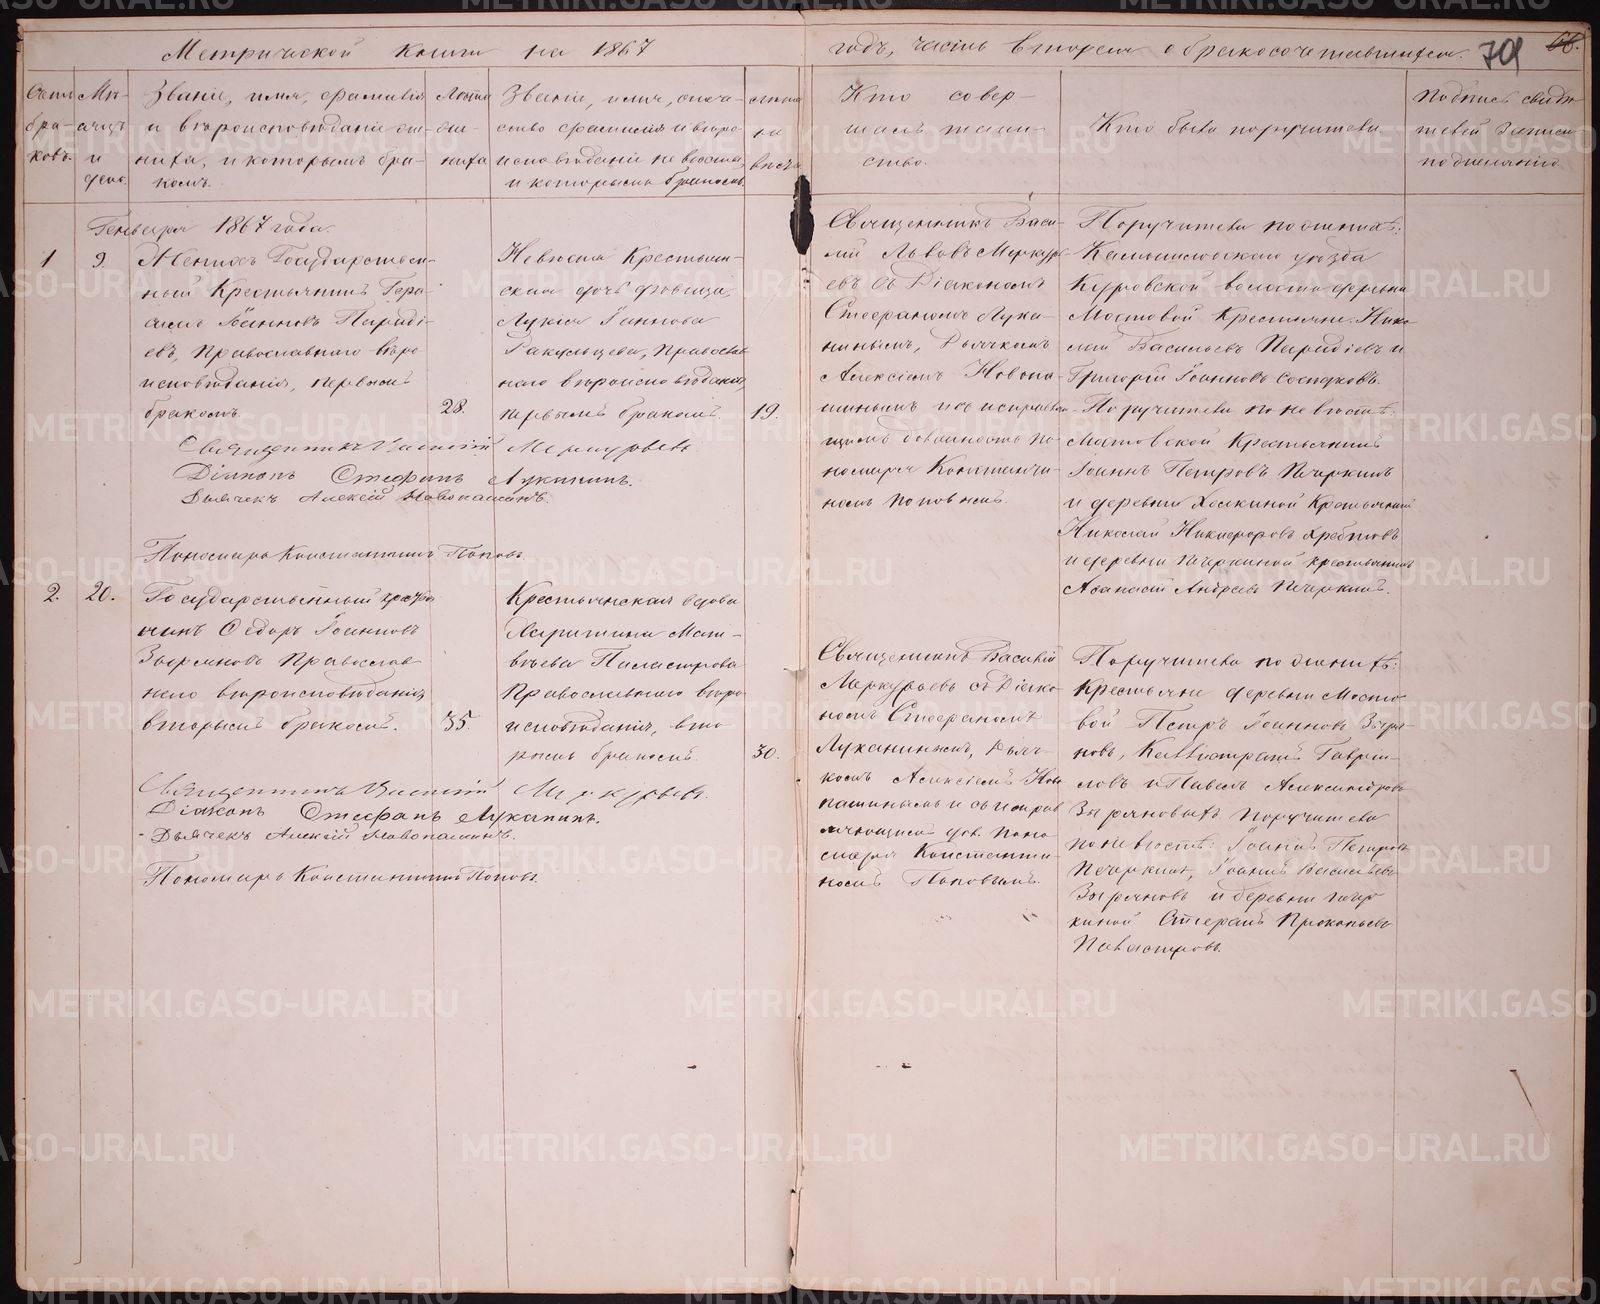 Метрической Книги на 1867
годъ, часть вторая о бракосочетавшихся.
701
66.
Счетъ бра-ковъ.
Мѣ-сяцъ и день.
Званіе, имя, фамилія
и вѣроисповѣданіе же-
ниха, и которымъ бра-
комъ.
Лѣта
же-
ниха
Званіе, имя, отче-
ство фамилія и вѣро-
исповѣданіе невѣсты,
и которымъ бракомъ.
лѣта
не-
вѣсты
Кто совер-
шалъ таин-
ство.
Кто были поручители
Подпись свидѣ-
телей записи
по желанію.
Генваря 1867 года.
1
9.
Женихъ Государствен-
ный Крестьянинъ Гера-
симъ Іоанновъ
православнаго вѣро
исповѣданія, первымъ
бракомъ.
28.
Невѣста Крестьян-
ская дочь дѣвица,
Лукія Іаннова
Ракульцева, Православ
наго вѣроисповѣданія,
первымъ бракомъ.
19.
Священникъ Васи-
лій Львовъ Меркурь-
евъ съ Діакономъ
Стефаномъ Лука-
нинымъ, Дьячкомъ
Алексіемъ Новопа-
шинымъ и съ исправля
ющимъ должность по-
номаря Константи-
номъ Поповымъ.
Поручители по женихѣ:
Камышловскаго уѣзда
Куровской волости деревни
Мостовой Крестьяне: Нико
лай Васильевъ и
Григорій Іоанновъ
Поручители по невѣстѣ:
Мостовской Крестьянинъ
Іоаннъ Петровъ Пичкинъ
и деревни Крестьянинъ
Николай Никифоровъ Хребтовъ
и деревни крестьянинъ
Аѳанасій Андреевъ
Священникъ Василій Меркурьевъ
Діаконъ Стефанъ Луканинъ.
Дьячекъ Алексій Новопашинъ.
Пономарь Константинъ Поповъ.
2.
20.
Государственный крестья
нинъ Ѳедоръ Іоанновъ
Зыряновъ Православ
наго вѣроисповѣданія,
вторымъ бракомъ.
35.
Крестьянская вдова
Харитина Мат-
вѣева
Православнаго вѣро
исповѣданія, вто
рымъ бракомъ.
30.
Священникъ Василій
Меркурьевъ съ Діако-
номъ Стефаномъ
Луканинымъ, Дьяч-
комъ Алексіемъ Ново
пашинымъ и съ исправ
ляющимъ дол. поно-
маря Константи-
номъ Поповымъ.
Поручители по женихѣ:
Крестьяне деревни Мосто-
вой Петръ Іоанновъ Зыря-
новъ, Каллистратъ Гаври-
ловъ и Павелъ Александровъ
Зыряновы, поручители
по невѣстѣ: Іоаннъ Петровъ
Іоаннъ Васильевъ
Зыряновъ и деревни
Стефанъ Прокопьевъ
Священникъ Василій Меркурьевъ.
Діаконъ Стефанъ Луканинъ.
Дьячекъ Алексій Новопашинъ.
Пономарь Константинъ Поповъ.
METRIKI.GASO-URAL.RU